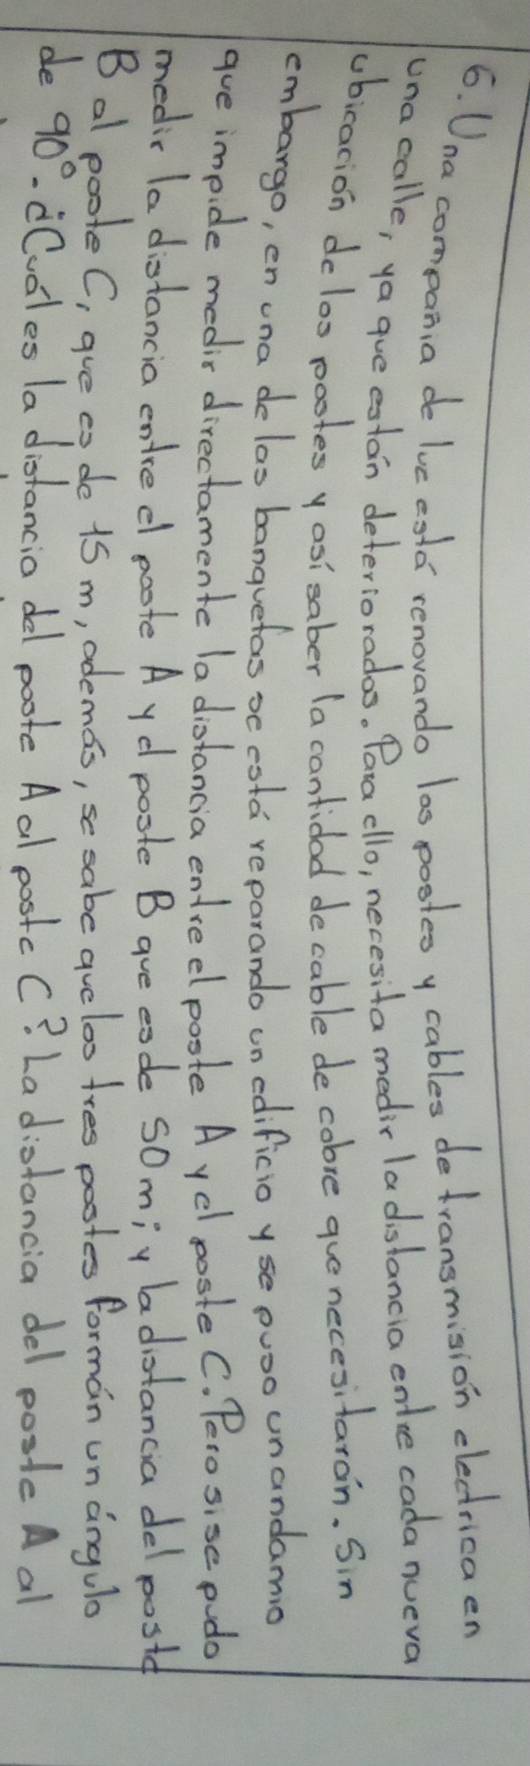 6. Una compañia de luz está renovando los postes y cables de transmisión electrica en
una calle, ya que están deteriorados. Para ello, necesita medir la distancia entre cada nueva
ubicación de los postes y así saber la cantidad de cable de cobre que necesitarán. Sin
embargo, en una de las banquetas se está reparando un edificio y se puso un andamio
que impide medir directamente la distancia entre el poste A y el poste C. Pero si se pudo
medir la distancia entre el poste A y el poste B que es de 50 m; y la distancia del poste
B al poste C, que es de 15 m, además, se sabe que los tres postes formán un ángulo
de 90°. ¿Cuál es la distancia del poste A al poste C? La distancia del poste A al